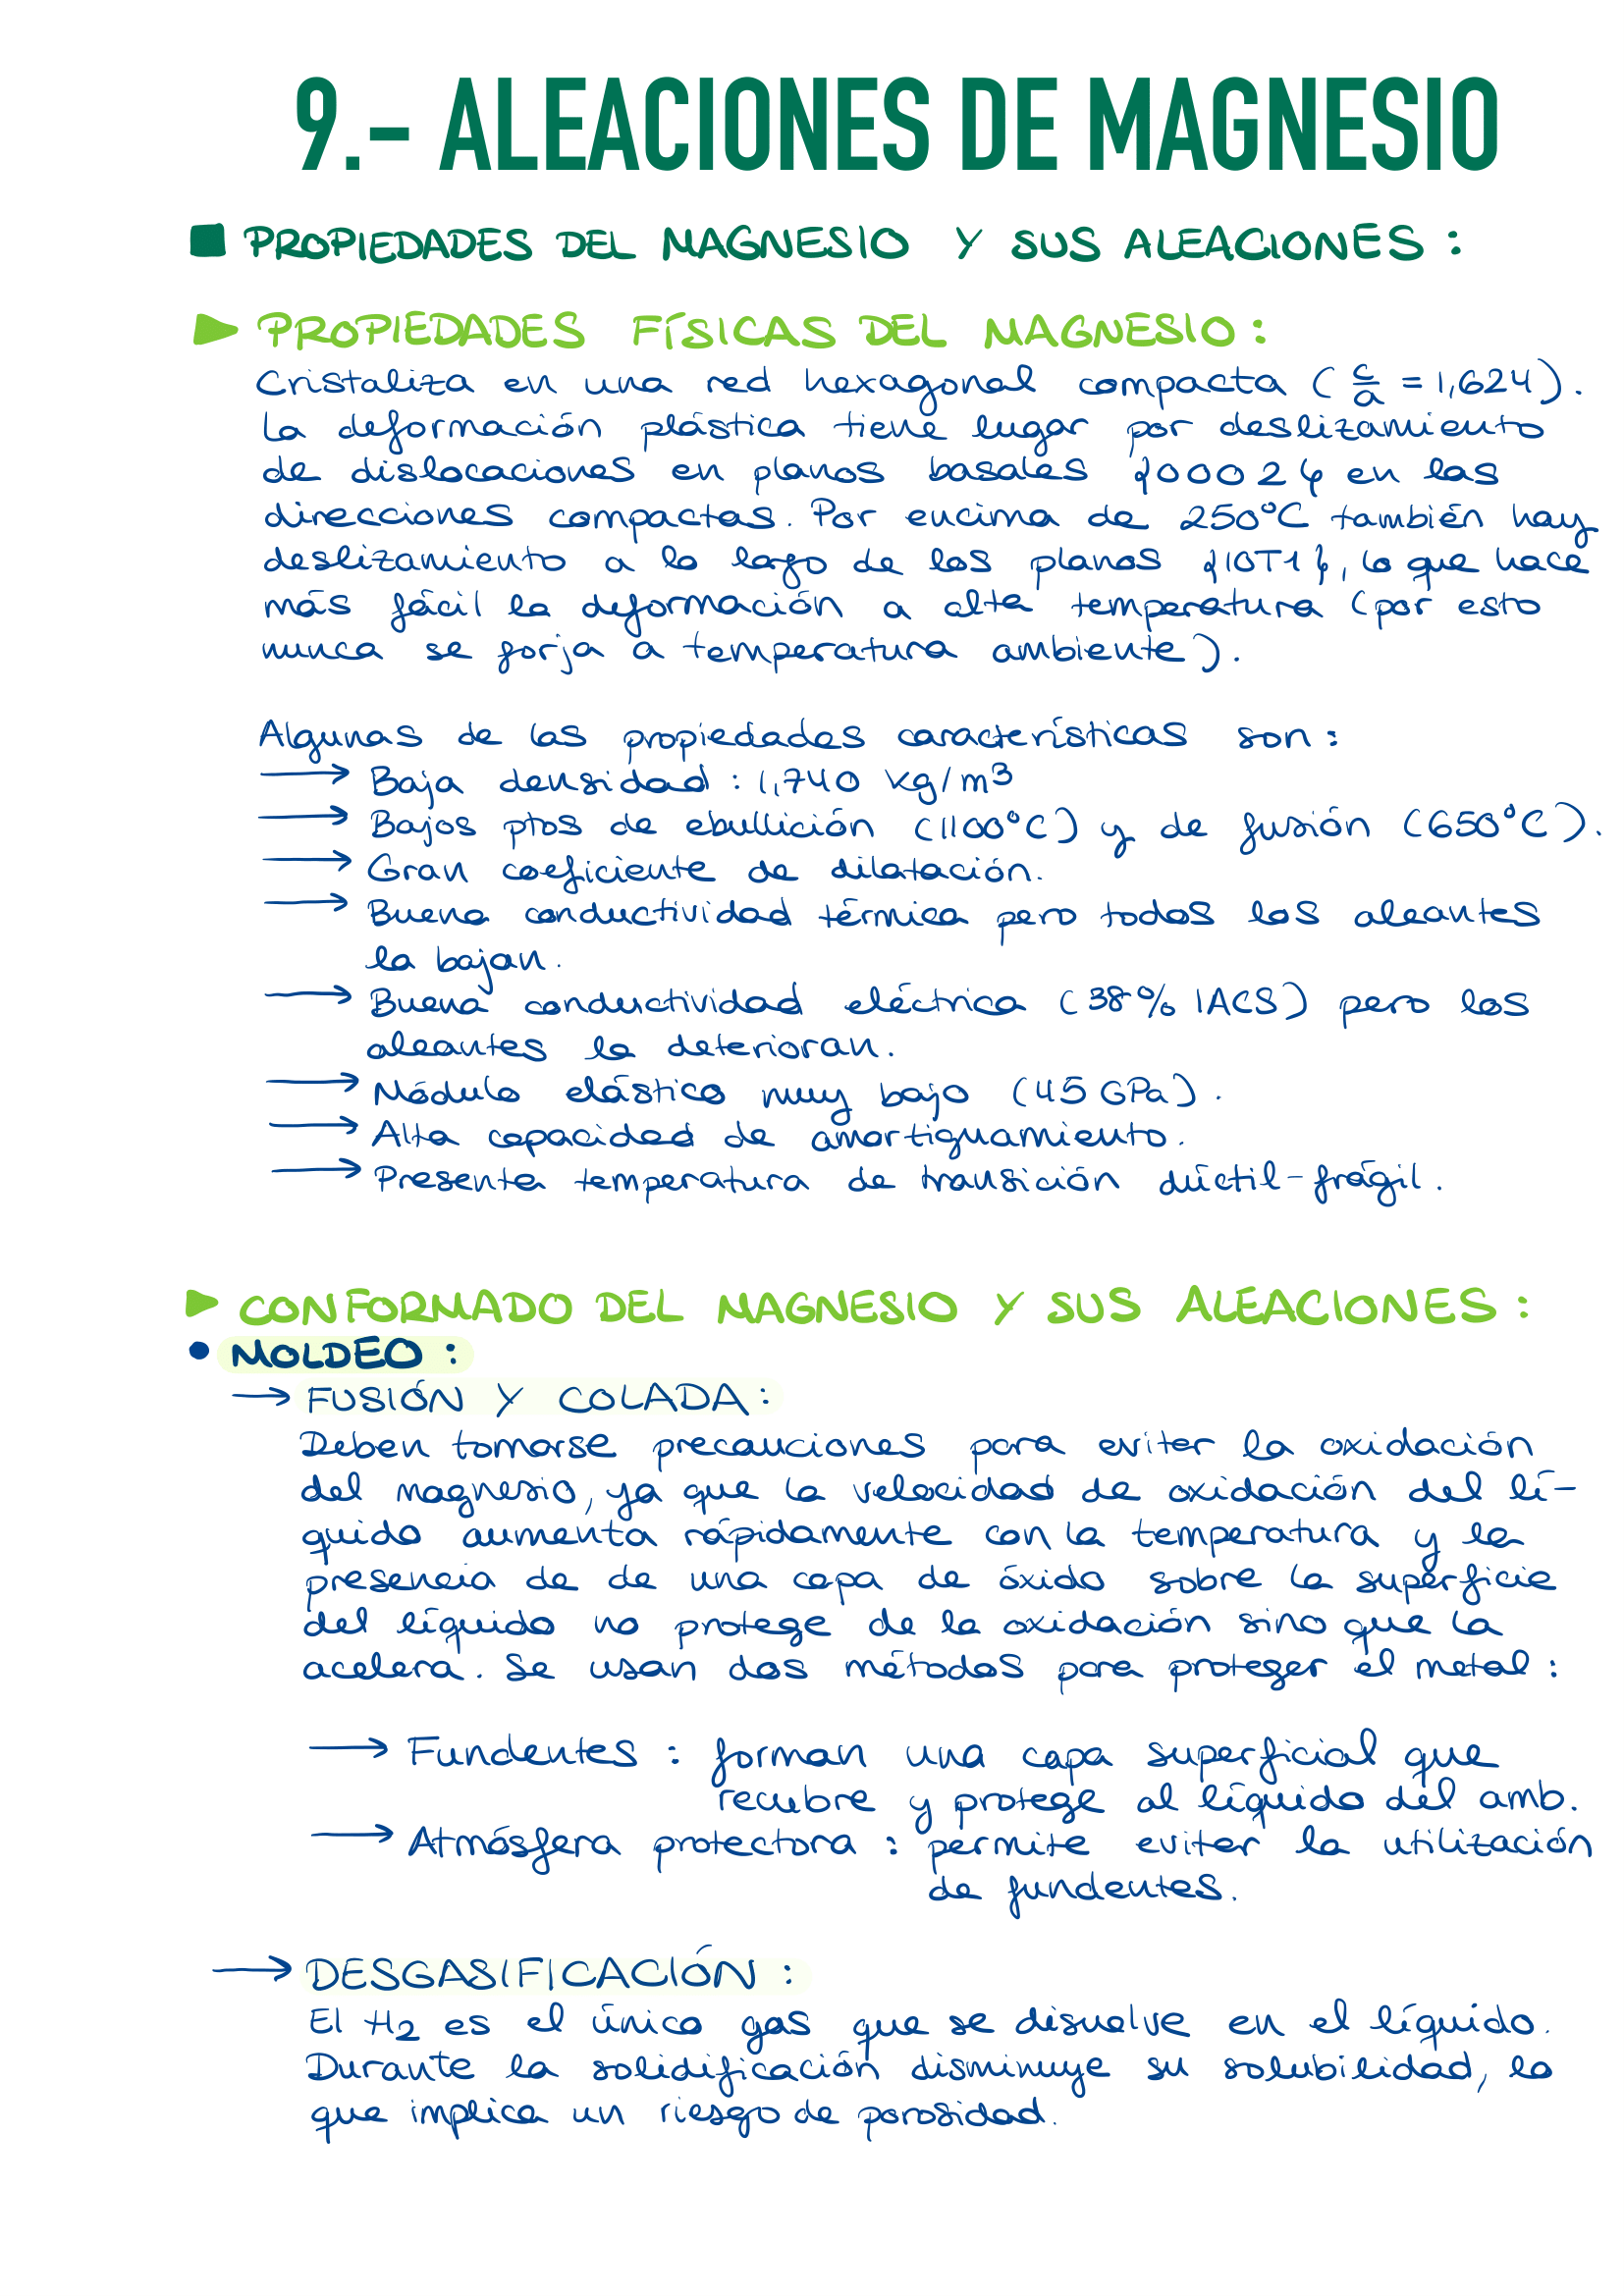 9.- ALEACIONES DE MAGNESIO
PROPIEDADES DEL MAGNESIO Y SUS ALEACIONES :
PROPIEDADES FÍSICAS DEL MAGNESIO :
Cristaliza en una red hexagonal compacta ( c/a = 1,624 ).
La deformación plástica tiene lugar por deslizamiento
de dislocaciones en planos basales {0002} en las
direcciones compactas. Por encima de 250°C también hay
deslizamiento a lo largo de los planos {10T1}, lo que hace
más fácil la deformación a alta temperatura (por esto
nunca se forja a temperatura ambiente).
Algunas de las propiedades características son :
→ Baja densidad : 1,740 kg/m³
→ Bajos ptos de ebullición (1100°C) y de fusión (650°C).
→ Gran coeficiente de dilatación.
→ Buena conductividad térmica pero todos los aleantes
la bajan.
→ Buena conductividad eléctrica (38% IACS) pero los
aleantes la deterioran.
→ Módulo elástico muy bajo (45 GPa).
→ Alta capacidad de amortiguamiento.
→ Presenta temperatura de transición dúctil-frágil.
CONFORMADO DEL MAGNESIO Y SUS ALEACIONES :
• MOLDEO :
→ FUSIÓN Y COLADA :
Deben tomarse precauciones para evitar la oxidación
del magnesio, ya que la velocidad de oxidación del lí-
quido aumenta rápidamente con la temperatura y la
presencia de de una capa de óxido sobre la superficie
del líquido no protege de la oxidación sino que la
acelera. Se usan dos métodos para proteger el metal :
→ Fundentes : forman una capa superficial que
recubre y protege al líquido del amb.
→ Atmósfera protectora : permite evitar la utilización
de fundentes.
→ DESGASIFICACIÓN :
El H2 es el único gas que se disuelve en el líquido.
Durante la solidificación disminuye su solubilidad, lo
que implica un riesgo de porosidad.